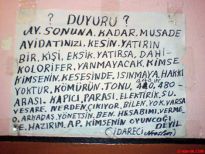 ? DUYURU ?
AY. SONUNA. KADAR. MUSADE
AYİDATINIZI. KESİN. YATIRIN
BİR. KİŞİ. EKSİK. YATIRSA. DAHİ-
KOLORİFER. YANMAYACAK. KİMSE
KİMSENİN. KESESİNDE. ISINMAYA. HAKKI
YOKTUR. KÖMÜRÜN. TONU.
ARASI. KAPICI. PARASI. ELEKTİRİK. SU.
VESAYRE. NERDEN. ÇIKIYOR. BİLEN. YOK. VARSA
O. ARKADAŞ. YÖNETSİN. BEN. HESABIMI. VERME-
YE. HAZIRIM. AP. KİMSENİN. OYUNCOĞI.
DEĞİL
(İDARECİ